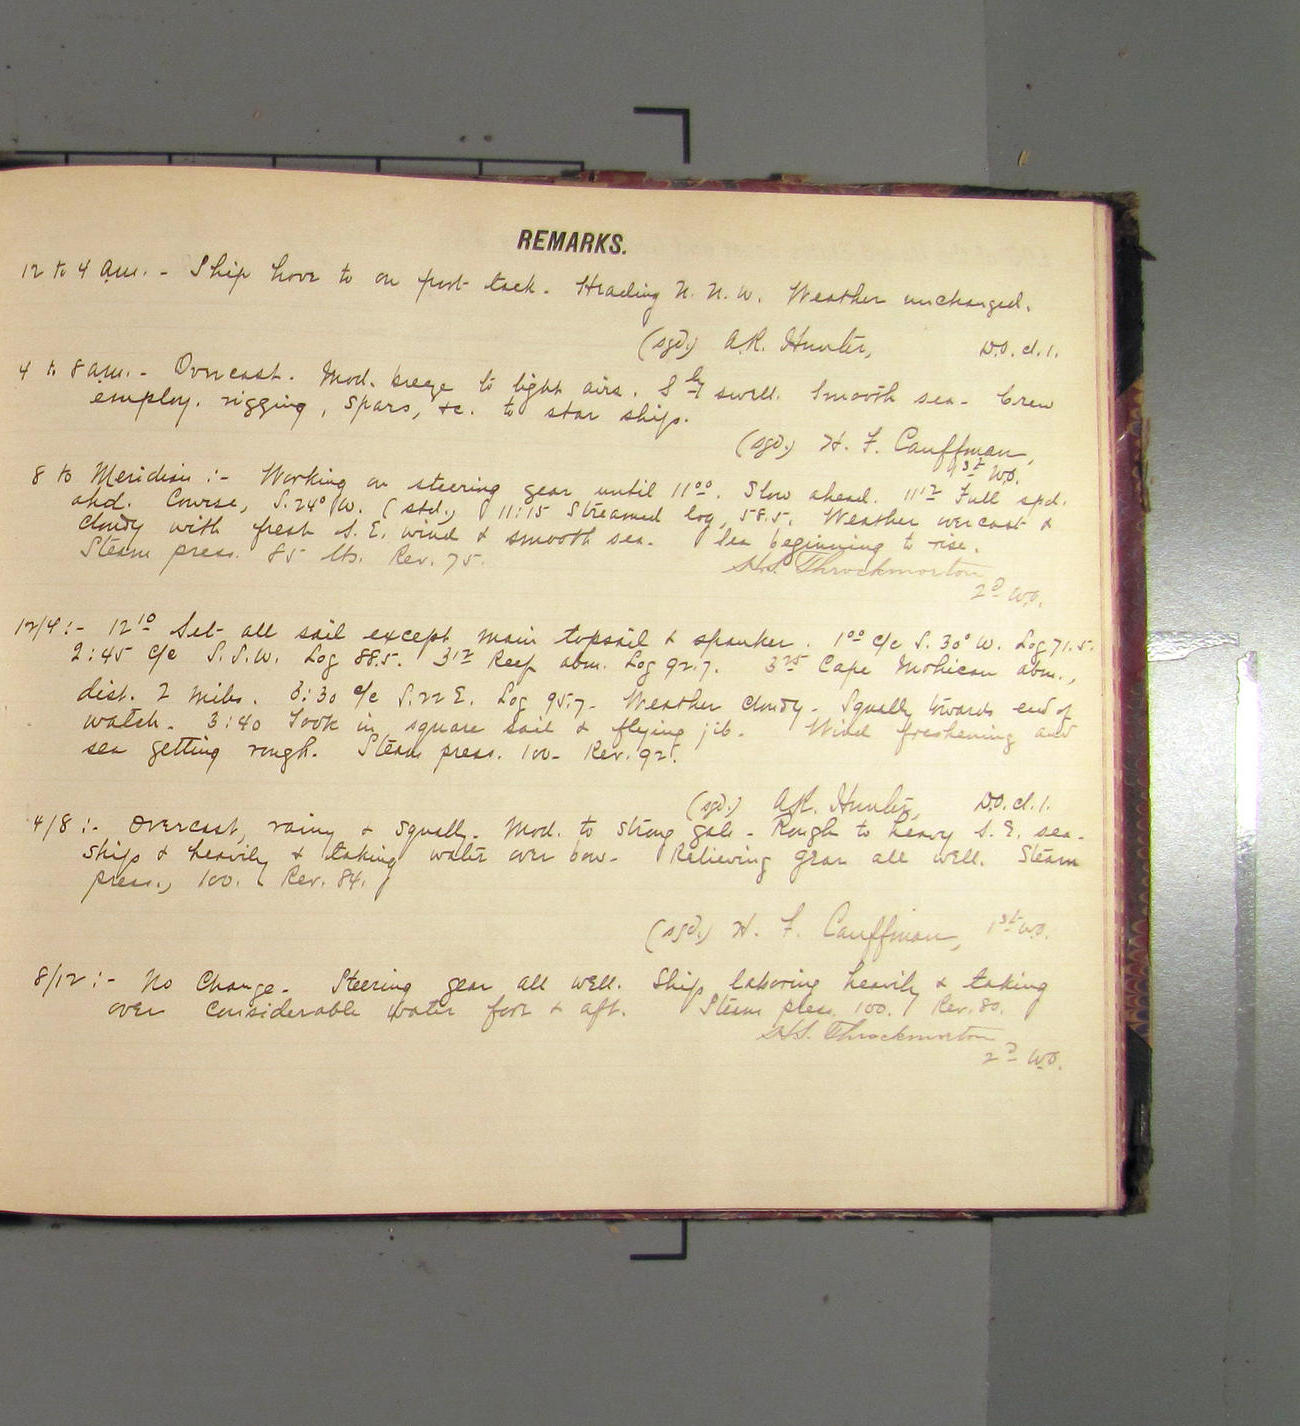 REMARKS.
12 to 4 a.m. - Ship hove to on port tack. Heading N. N. W. Weather unchanged.
(sgd.) A.R. Hunter, D.O. cl. 1.
4 to 8 a.m. - Overcast. Mod. breeze to light airs. S'ly swell. Smooth sea - Crew
employ. rigging, spars, &c. to star ships.
(sgd.) H. F. Cauffman,
1st W.O.
8 to Meridian :- Working on steering gear until 11 00. Slow ahead. 11 12 Full spd.
ahd. Course, S. 24° W. (std.) 11:15 Streamed log, 58.5. Weather overcast &
cloudy with fresh S. E. wind & smooth sea. Sea beginning to rise.
Steam press. 85 lbs. Rev. 75.
H.S. Throckmorton
2d W.O.
12/4 :- 12 10 Set all sail except main topsail & spanker. 1 00 c/c S. 30° W. Log 71.5.
2:45 c/c S. S. W. Log 88.5. 3 12 Reef abm. Log 92.7. 3 25 Cape Mohican abm.,
dist. 2 miles. 3:30 c/c S. 22 E. Log 95.7 - Weather cloudy - Squally towards end of
watch. 3:40 Took in square sail & flying jib. Wind freshening and
sea getting rough. Steam press. 100 - Rev. 92.
(sgd.) A.R. Hunter, D.O. cl. 1.
4/8 :- Overcast, rainy & squally. Mod. to strong gale - Rough to heavy S. E. sea -
Ship & heavily & taking water over bow - Relieving gear all well. Steam
press., 100. Rev. 84.
(sgd.) H. F. Cauffman, 1st W.O.
8/12 :- No Change. Steering gear all well. Ship laboring heavily & taking
over considerable water fore & aft. Steam press. 100. Rev. 80.
H.S. Throckmorton
2d W.O.